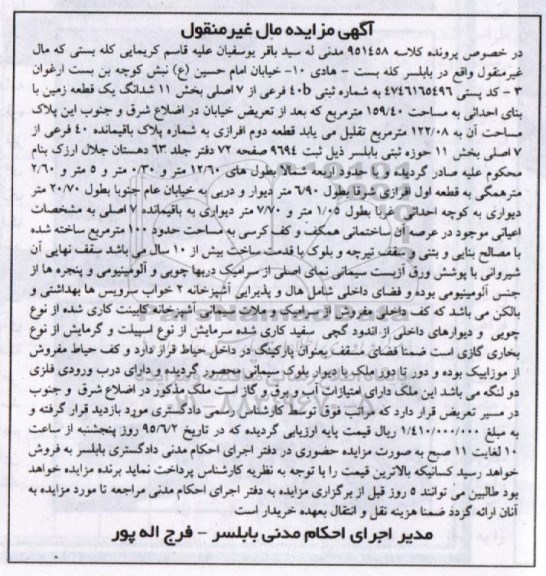 آگهی مزایده مال غیرمنقول
در خصوص پرونده کلاسه ۹۵۱۴۵۸ مدنی له سید باقر یوسفیان علیه قاسم کریمایی کله بستی که مال
غیرمنقول واقع در بابلسر کله بست - هادی ۱۰- خیابان امام حسین (ع) نبش کوچه بن بست ارغوان
۳ - کد پستی ۴۷۴۶۱۶۵۴۹۶ به شماره ثبتی ۴۰b فرعی از ۷ اصلی بخش ۱۱ شدانگ یک قطعه زمین با
بنای احداثی به مساحت ۱۵۹/۴۰ مترمربع که بعد از تعریض خیابان در اضلاع شرق و جنوب این پلاک
مساحت آن به ۱۲۲/۰۸ مترمربع تقلیل می یابد قطعه دوم افرازی به شماره پلاک باقیمانده ۴۰ فرعی از
۷ اصلی بخش ۱۱ حوزه ثبتی بابلسر ذیل ثبت ۹۶۹۴ صفحه ۷۲ دفتر جلد ۶۳ دهستان جلال ارزک بنام
محکوم علیه صادر گردیده و با حدود اربعه شمالا بطول های ۱۲/۶۰ متر و ۰/۳۰ متر و ۵ متر و ۲/۶۰
مترهمگی به قطعه اول افرازی شرقا بطول ۶/۹۰ متر دیوار و دربی به خیابان عام جنوبا بطول ۲۰/۷۰ متر
دیواری به کوچه احداثی غربا بطول ۱/۰۵ متر و ۷/۷۰ متر دیواری به باقیمانده ۷ اصلی به مشخصات
اعیانی موجود در عرصه آن ساختمانی همکف و کف کرسی به مساحت حدود ۱۰۰ مترمربع ساخته شده
با مصالح بنایی و بتنی و سقف تیرچه و بلوک با قدمت ساخت بیش از ۱۰ سال می باشد سقف نهایی آن
شیروانی با پوشش ورق آزبست سیمانی نمای اصلی از سرامیک دربها چوبی و آلومینیومی و پنجره ها از
جنس آلومینیومی بوده و فضای داخلی شامل هال و پذیرایی آشپزخانه ۲ خواب سرویس ها بهداشتی و
بالکن می باشد که کف داخلی مفروش از سرامیک و پلات سیمانی آشپزخانه کابینت کاری شده از نوع
چوبی و دیوارهای داخلی از اندود گچی سفید کاری شده سرمایش از نوع اسپیلت و گرمایش از نوع
بخاری گازی است ضمنا فضای مسقف بعنوان پارکینگ در داخل حیاط قرار دارد و کف حیاط مفروش
از موزاییک بوده و دور تا دور ملک با دیوار بلوک سیمانی محصور گردیده و دارای درب ورودی فلزی
دو لنگه می باشد این ملک دارای امتیازات آب و برق و گاز است ملک مذکور در اضلاع شرق و جنوب
در مسیر تعریض قرار دارد که مراتب فوق توسط کارشناس رسمی دادگستری مورد بازدید قرار گرفته و
به مبلغ ۱/۴۱۰/۰۰۰/۰۰۰ ریال قیمت پایه ارزیابی گردیده که در تاریخ ۹۵/۶/۲ روز پنجشنبه از ساعت
۱۰ لغایت ۱۱ صبح به صورت مزایده حضوری در دفتر اجرای احکام مدنی دادگستری بابلسر به فروش
خواهد رسید کسانیکه بالاترین قیمت را با توجه به نظریه کارشناس پرداخت نماید برنده مزایده خواهد
بود طالبین می توانند ۵ روز قبل از برگزاری مزایده به دفتر اجرای احکام مدنی مراجعه تا مورد مزایده به
آنان ارائه گردد ضمنا هزینه نقل و انتقال بعهده خریدار است
مدیر اجرای احکام مدنی بابلسر - فرج اله پور